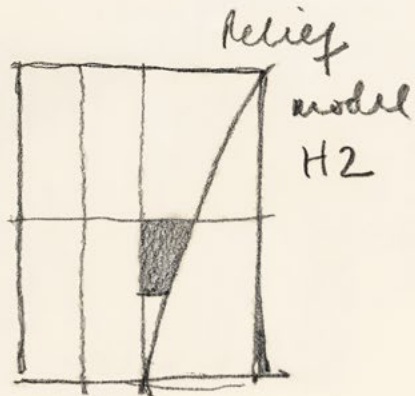 Relief
model
H2